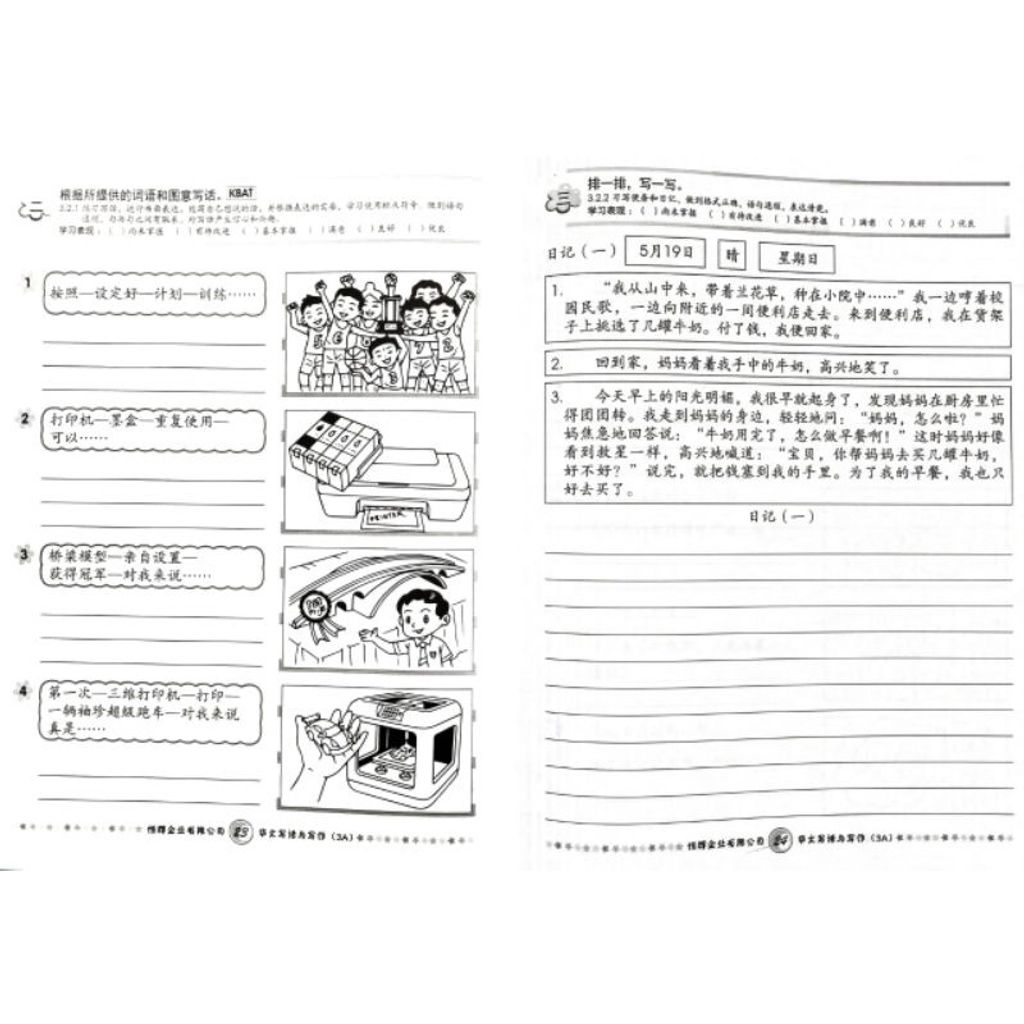 二
根据所提供的词语和图意写话。 KBAT
学习表现：（ ）尚未掌握 （ ）有待改进 （ ）基本掌握 （ ）满意 （ ）良好 （ ）优良
1
按照—设定好—计划—训练……
2
打印机—墨盒—重复使用—
可以……
PRINTER
3
桥梁模型—亲自设置—
获得冠军—对我来说……
4
第一次—三维打印机—打印—
一辆袖珍超级跑车—对我来说
真是……
企业有限公司 23 华文写话与写作（3A）
三
排一排，写一写。
3.2.2 习写便条和日记，做到格式正确、语句通顺、表达清楚。
学习表现：（ ）尚未掌握 （ ）有待改进 （ ）基本掌握 （ ）满意 （ ）良好 （ ）优良
日记（一） 5月19日 晴 星期日
1. “我从山中来，带着兰花草，种在小院中……”我一边哼着校
园民歌，一边向附近的一间便利店走去。来到便利店，我在货架
子上挑选了几罐牛奶。付了钱，我便回家。
2. 回到家，妈妈看着我手中的牛奶，高兴地笑了。
3. 今天早上的阳光明媚，我很早就起身了，发现妈妈在厨房里忙
得团团转。我走到妈妈的身边，轻轻地问：“妈妈，怎么啦？”妈
妈焦急地回答说：“牛奶用完了，怎么做早餐啊！”这时妈妈好像
看到救星一样，高兴地喊道：“宝贝，你帮妈妈去买几罐牛奶，
好不好？”说完，就把钱塞到我的手里。为了我的早餐，我也只
好去买了。
日记（一）
企业有限公司 24 华文写话与写作（3A）